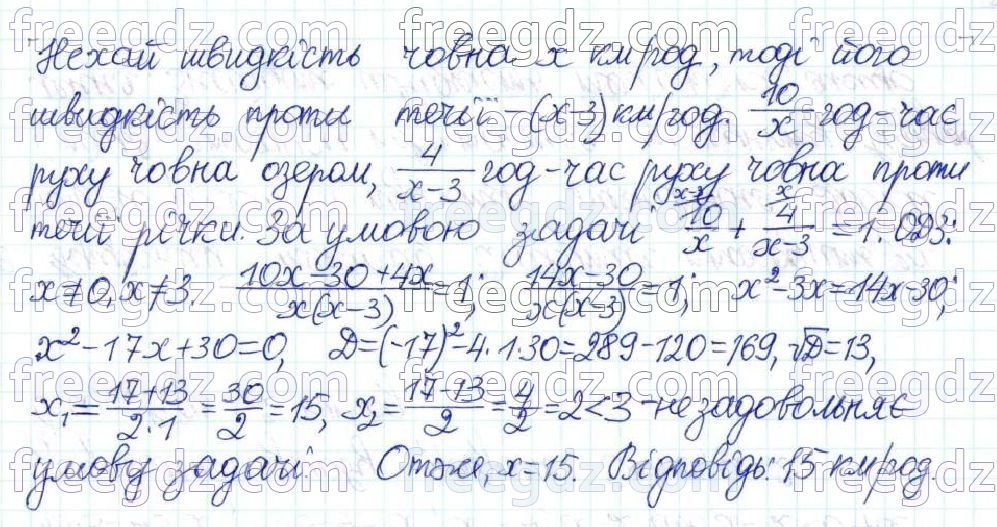 Нехай швидкість човна x км/год, тоді його
швидкість проти течії – (x-3) км/год. 10/x год – час
руху човна озером, 4/(x-3) год – час руху човна проти
течії річки. За умовою задачі 10/x + 4/(x-3) = 1. ОДЗ:
x≠0, x≠3. (10x-30+4x)/(x(x-3)) = 1; (14x-30)/(x(x-3)) = 1; x²-3x=14x-30;
x²-17x+30=0, D=(-17)²-4·1·30=289-120=169, √D=13,
x₁=(17+13)/(2·1)=30/2=15, x₂=(17-13)/2=4/2=2<3 – не задовольняє
умову задачі. Отже, x=15. Відповідь: 15 км/год.
freegdz.com freegdz.com freegdz.com